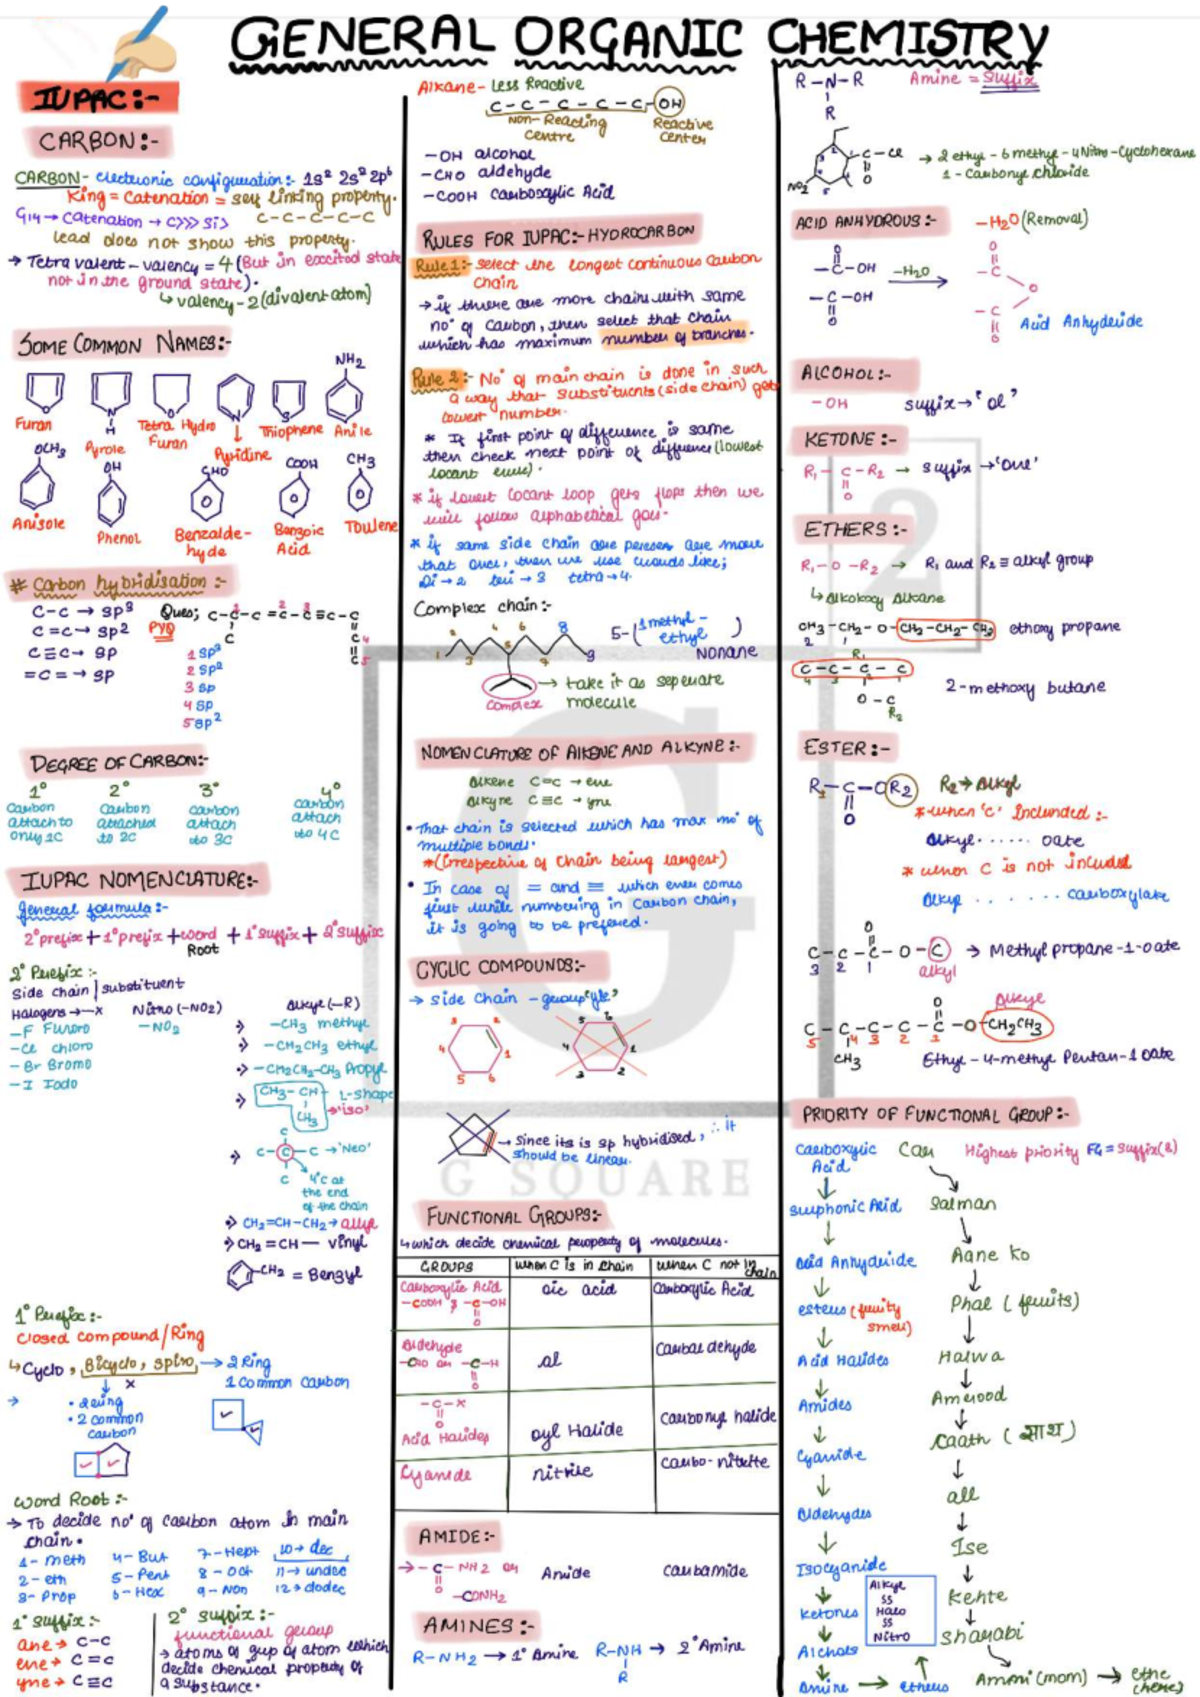 GENERAL ORGANIC CHEMISTRY
IUPAC:-
CARBON:-
CARBON- electronic configuration:- 1s² 2s² 2p⁶
King = Catenation = self linking property.
G14 → Catenation → C>>> Si>
C-C-C-C-C
lead does not show this property.
→ Tetra valent - valency = 4 (But in excited state
not in the ground state).
↳ valency - 2 (divalent atom)
SOME COMMON NAMES:-
NH2
N
H
O
S
Furan
Pyrole
Tetra Hydro
Furan
Pyridine
Thiophene
Anile
OCH3
OH
CHO
COOH
CH3
Anisole
Phenol
Benzalde-
hyde
Benzoic
Acid
Toulene
# Carbon hybridisation :-
C-C → sp3
C=C → sp2
C≡C → sp
=C= → sp
Ques; C-C-C=C-C≡C-C
PYQ
1 sp3
2 sp2
3 sp
4 sp
5 sp2
DEGREE OF CARBON:-
1° 2° 3° 4°
Carbon
attach to
only 1C
Carbon
attached
to 2C
carbon
attach
to 3C
carbon
attach
to 4C
IUPAC NOMENCLATURE:-
general formula:-
2° prefix + 1° prefix + word Root + 1° suffix + 2° suffix
2° Prefix :-
Side chain | substituent
Halogens → -X
Nitro (-NO2)
Alkyl (-R)
-F Fluoro
-NO2
-Cl chloro
-Br Bromo
-I Iodo
-CH3 methyl
-CH2CH3 ethyl
-CH2CH2-CH3 Propyl
CH3-CH-
CH3
L-shape
→ 'iso'
C
C-C-C → 'Neo'
C
4°C at
the end
of the chain
CH2=CH-CH2 → allyl
CH2=CH — vinyl
-CH2 = Benzyl
1° Prefix :-
Closed compound/Ring
↳ Cyclo, Bicyclo, spiro → 2 Ring
1 Common Carbon
• 2 ring
• 2 common
carbon
word Root :-
→ To decide no° of carbon atom in main
chain.
1- meth
4- But
7- Hept
10 → dec
2- eth
5- Pent
8- Oct
11 → undec
3- Prop
6- Hex
9- Non
12 → dodec
1° suffix :-
ane → C-C
ene → C=C
yne → C≡C
2° suffix :-
functional group
→ atoms of grp of atom which
decide chemical property of
a substance.
Alkane- Less Reactive
C-C-C-C-C-C-OH
Non-Reacting
Centre
Reactive
Center
-OH alcohol
-CHO aldehyde
-COOH carboxylic Acid
RULES FOR IUPAC:- HYDROCARBON
Rule 1:- Select the longest continuous Carbon
chain
→ if there are more chains with same
no° of Carbon, then select that chain
which has maximum number of branches.
Rule 2:- No° of main chain is done in such
a way that substituents (side chain) gets
lowest number.
* If first point of difference is same
then check next point of difference (lowest
locant rule).
* if lowest locant loop gets flops then we
will follow alphabetical
* if same side chain are more
that once, then we use words like;
Di → 2 tri → 3 tetra → 4.
Complex chain:-
1 2 3 4 5 6 7 8 9
5-(1methyl-
ethyl)
Nonane
→ take it as seperate
molecule
complex
NOMENCLATURE OF ALKENE AND ALKYNE:-
Alkene C=C → ene
Alkyne C≡C → yne
• That chain is selected which has max no° of
multiple bonds.
*(Irrespective of chain being largest)
• In case of = and ≡ which ever comes
first while numbering in Carbon chain,
it is going to be prefered.
CYCLIC COMPOUNDS:-
→ side Chain - group 'yle'
→ since its is sp hybridised, ∴ it
should be linear.
G SQUARE
FUNCTIONAL GROUPS:-
↳ which decide chemical property of molecules.
GROUPS | when C is in chain | when C not in chain
Carboxylic Acid | oic acid | Carboxylic Acid
-COOH ; -C-OH
O
Aldehyde | al | Carbaldehyde
-CHO or -C-H
O
-C-X
O
Acid Halides | oyl Halide | Carbonyl halide
Cyanide | nitrile | carbo-nitrile
AMIDE:-
→ -C-NH2 or
O
-CONH2
Amide
carbamide
AMINES:-
R-NH2 → 1° Amine
R-NH → 2° Amine
R
R-N-R
R
Amine = Suffix
C-Cl
O
NO2
→ 2 ethyl-6 methyl-4 Nitro-Cyclohexane
1-Carbonyl chloride
ACID ANHYDROUS:-
-H2O (Removal)
-C-OH
-H2O
-C-OH
O
Acid Anhydride
ALCOHOL:-
-OH suffix → 'ol'
KETONE:-
R1-C-R2 → suffix → 'one'
O
ETHERS:-
R1-O-R2 → R1 and R2 ≡ alkyl group
↳ Alkoxy Alkane
CH3-CH2-O-CH2-CH2-CH3 ethoxy propane
2 1
R1
C-C-C-C
4 3 2 1
O-C
R2
2-methoxy butane
ESTER:-
R1-C-OR2
O
R2 → Alkyl
* when 'C' Included :-
Alkyl ...... oate
* when C is not included
Alkyl ...... carboxylate
O
C-C-C-O-C → Methyl propane-1-oate
3 2 1
alkyl
Alkyl
O
C-C-C-C-C-O-CH2CH3
5 4 3 2 1
CH3
Ethyl-4-methyl Pentan-1 oate
PRIORITY OF FUNCTIONAL GROUP:-
Highest priority FG = Suffix(2)
Carboxylic
Acid
Car
Sulphonic Acid
Salman
Acid Anhydride
Aane ko
esters (fruity
smell)
Phal (fruits)
Acid Halides
Halwa
Amides
Amrood
Cyanide
Caath (साथ)
Aldehydes
all
Isocyanide
Ise
Ketones
Kehte
Alcohols
Sharabi
Alkyl
SS
Halo
SS
Nitro
Amine → ethers
Ammi (mom) → ethe
(here)